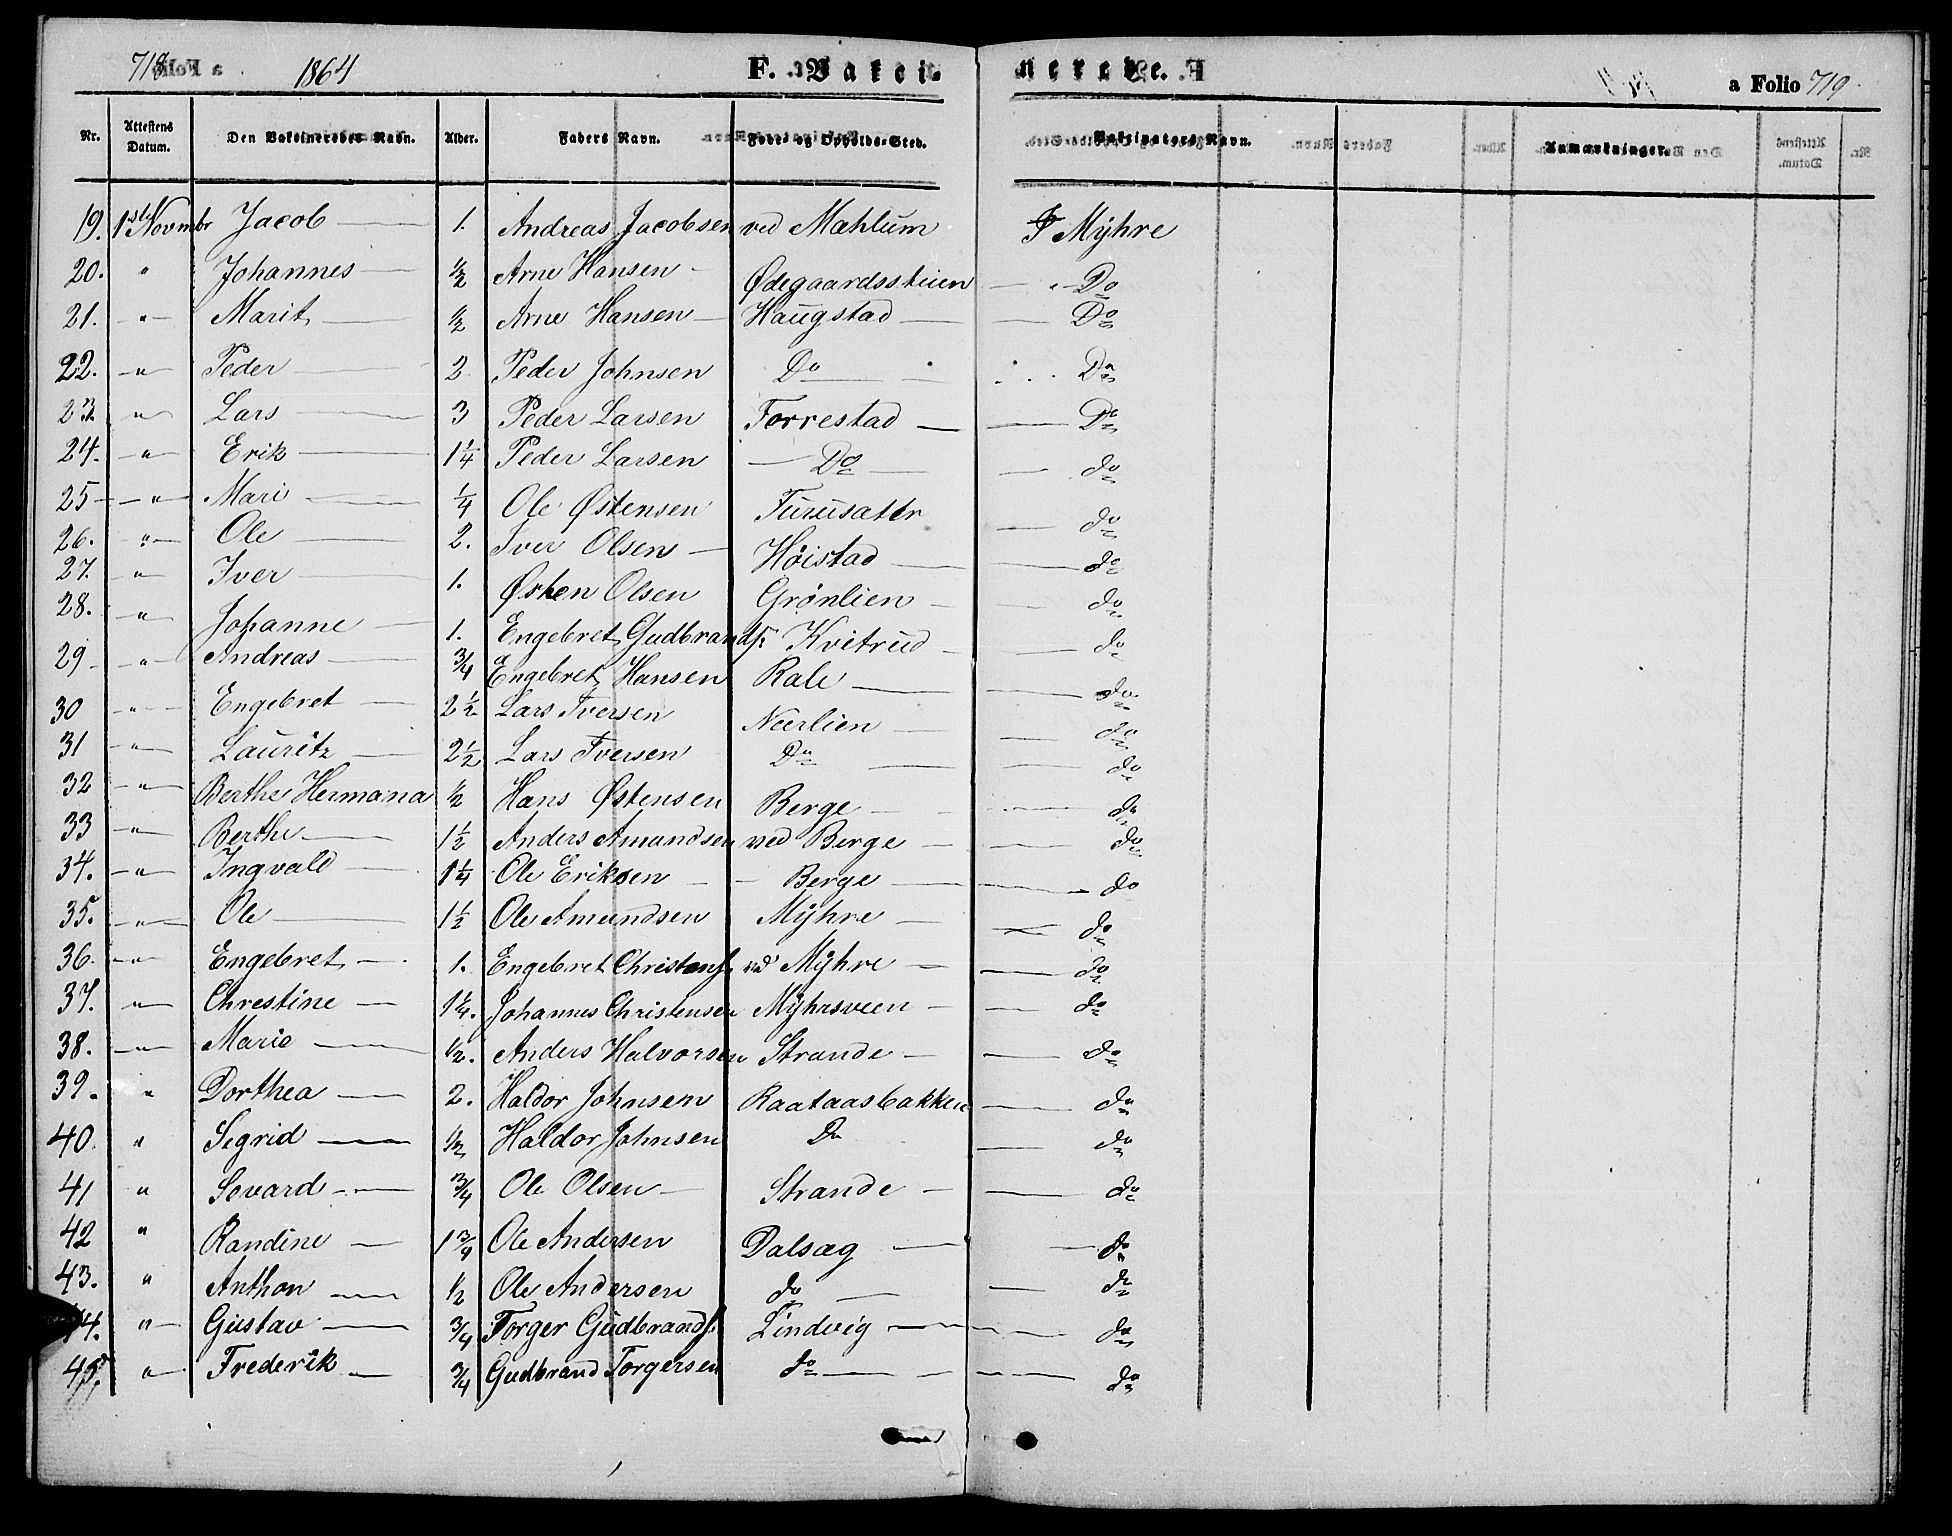 718 1864 F. Vakci- nerede. a Folio 719
Nr. Attestens Datum. Den Vaksineredes Navn. Alder. Faders Navn. Føde- og Opholds-Sted. Vaksinators Navn. Anmærkninger.
19. 1ste Novmbr Jacob — 1. Andreas Jacobsen ved Mæhlum Myhre
20. " Johannes — 1/2 Arne Hansen — Ødegaardsstuen — Do
21. " Marit — 1/2 Arne Hansen — Haugstad — Do
22. " Peder — 2 Peder Johnsen Do — Do
23 " Lars — 3 Peder Larsen Forrestad — Do
24. " Erik — 1 1/4 Peder Larsen — Do — do
25 " Mari — 1/4 Ole Østensen Furusæter — do
26. " Ole — 2. Iver Olsen — Høistad — do
27. " Iver — 1. Østen Olsen Grønlien — do
28. " Johanne — 1. Engebret Gudbrands. Kvitrud — do
29 " Andreas — 3/4 Engebret Hansen Rale — do
30 " Engebret — 2 1/2 Lars Iversen Nerlien — do
31 " Lauritz — 2 1/2 Lars Iversen Do — do
32 " Berthe Hermana 1/2 Hans Østensen Berge — do
33 " Berthe — 1 1/2 Anders Amundsen ved Berge — do
34. " Ingvald — 1 1/4 Ole Eriksen — Berge — do
35. " Ole — 1 1/2 Ole Amundsen Myhre — do
36. " Engebret — 1. Engebret Christens. ved Myhre — do
37. " Chrestine — 1 1/4. Johannes Christensen Myhrsveen — do
38. " Marie — 1/2. Anders Halvorsen Strande — do
39. " Dorthea — 2. Haldor Johnsen Raataasbakken — do
40. " Segrid — 1/2 Haldor Johnsen Do — do
41 " Sevard — 3/4 Ole Olsen — Strande — do
42 " Randine — 1 3/4 Ole Andersen Dalsæg — do
43. " Anthon — 1/2 Ole Andersen do — do
44. " Gustav — 3/4 Torger Gudbrands. Lindvig — do
45. " Frederik — 3/4 Gudbrand Torgersen do — do